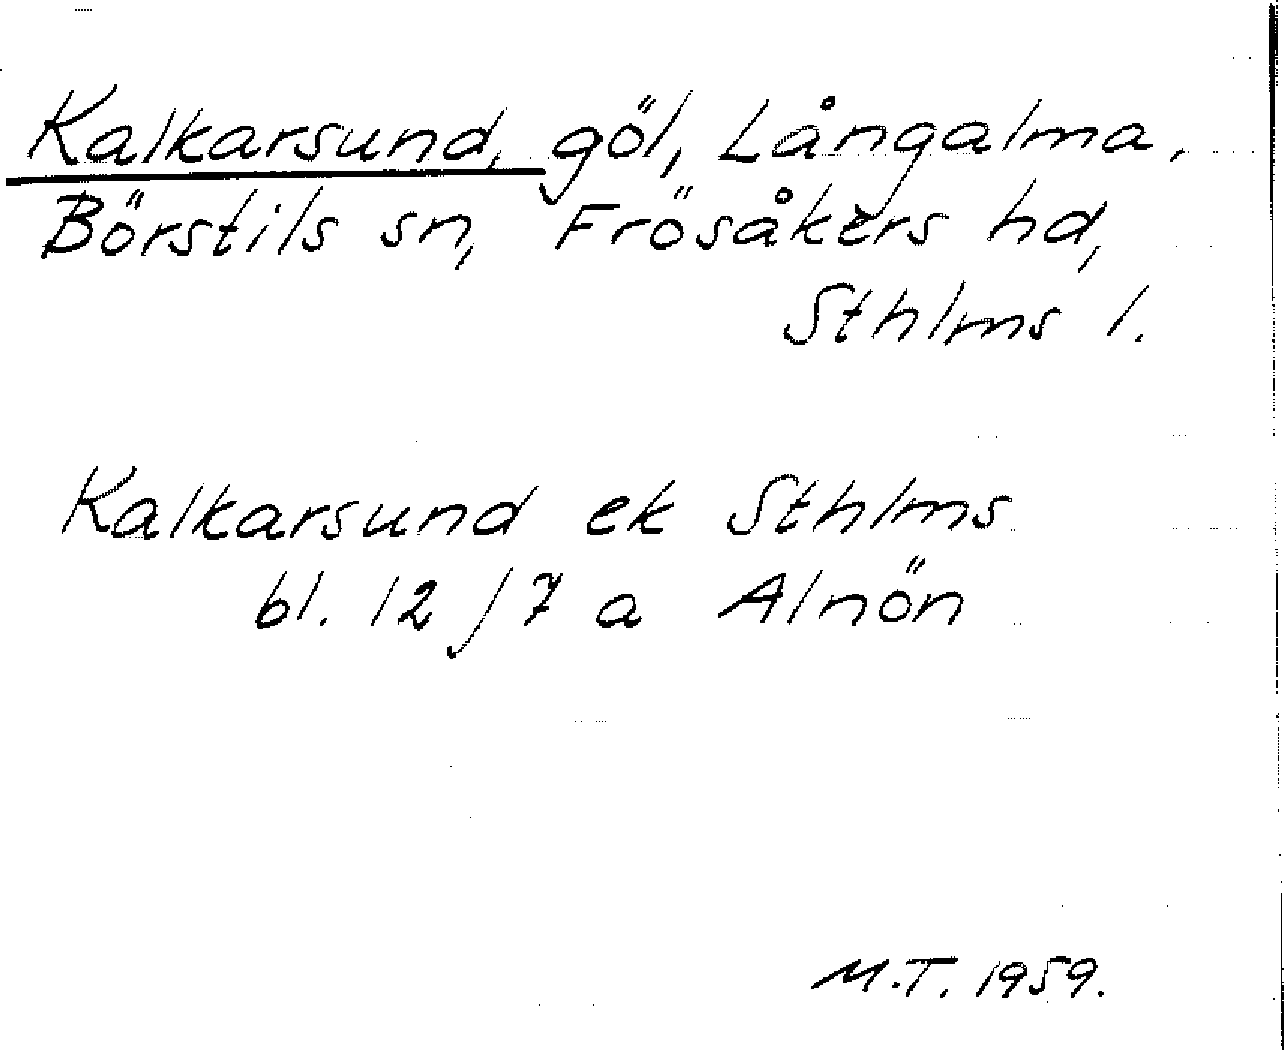 Kalkarsund, göl, Långalma,
Börstils sn, Frösåkers hd,
Sthlms l.
Kalkarsund ek Sthlms
bl. 12 / 7 a Alnön
M.T. 1959.